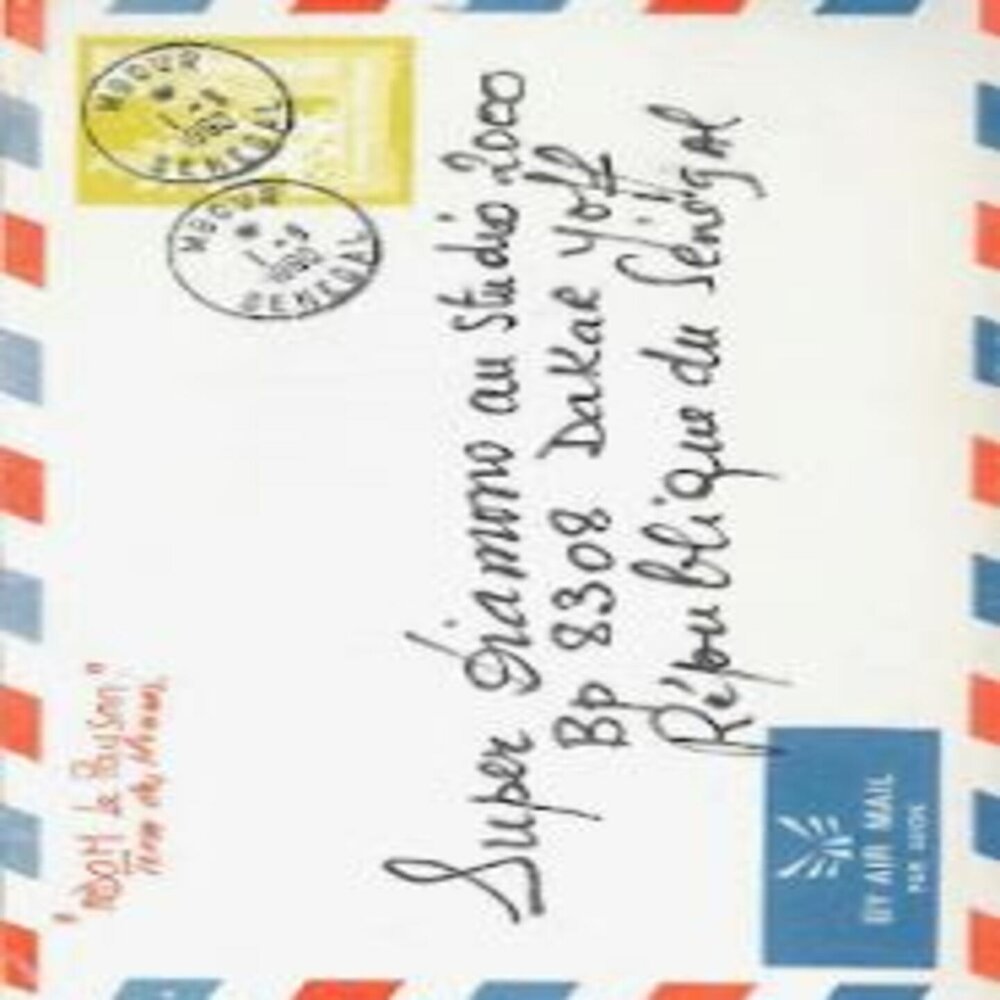 Le Paysan"
MBOUR
SENEGAL
MBOUR
1-9
SENEGAL
Super Diamono au Studio 2000
Bp 8308 Dakar Yoff
République du Sénégal
BY AIR MAIL
PAR AVION